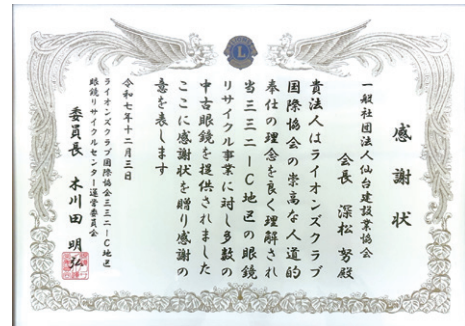 感謝状
一般社団法人仙台建設業協会
会長 深松 努殿
貴法人はライオンズクラブ
国際協会の崇高な人道的
奉仕の理念を良く理解され
当三三二ーC地区の眼鏡
リサイクル事業に対し多数の
中古眼鏡を提供されました
ここに感謝状を贈り感謝の
意を表します
令和七年十二月三日
ライオンズクラブ国際協会三三二ーC地区
眼鏡リサイクルセンター運営委員会
委員長 木川田 明弘